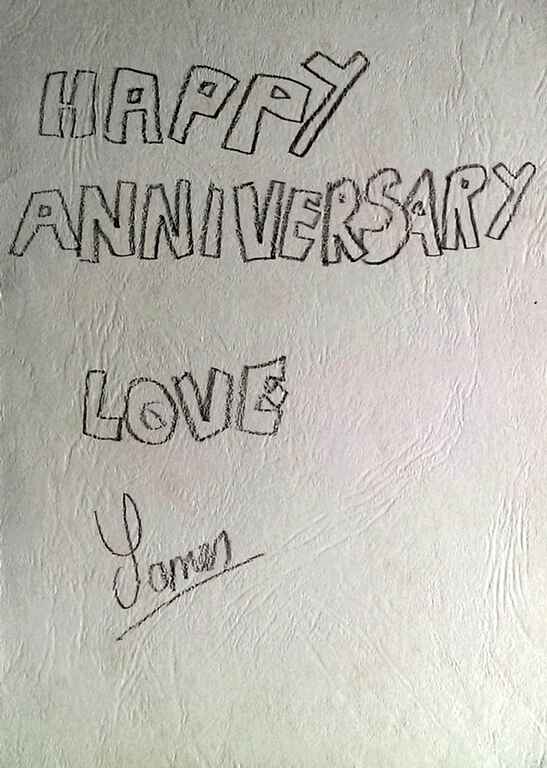 HAPPY
ANNIVERSARY
LOVE
James